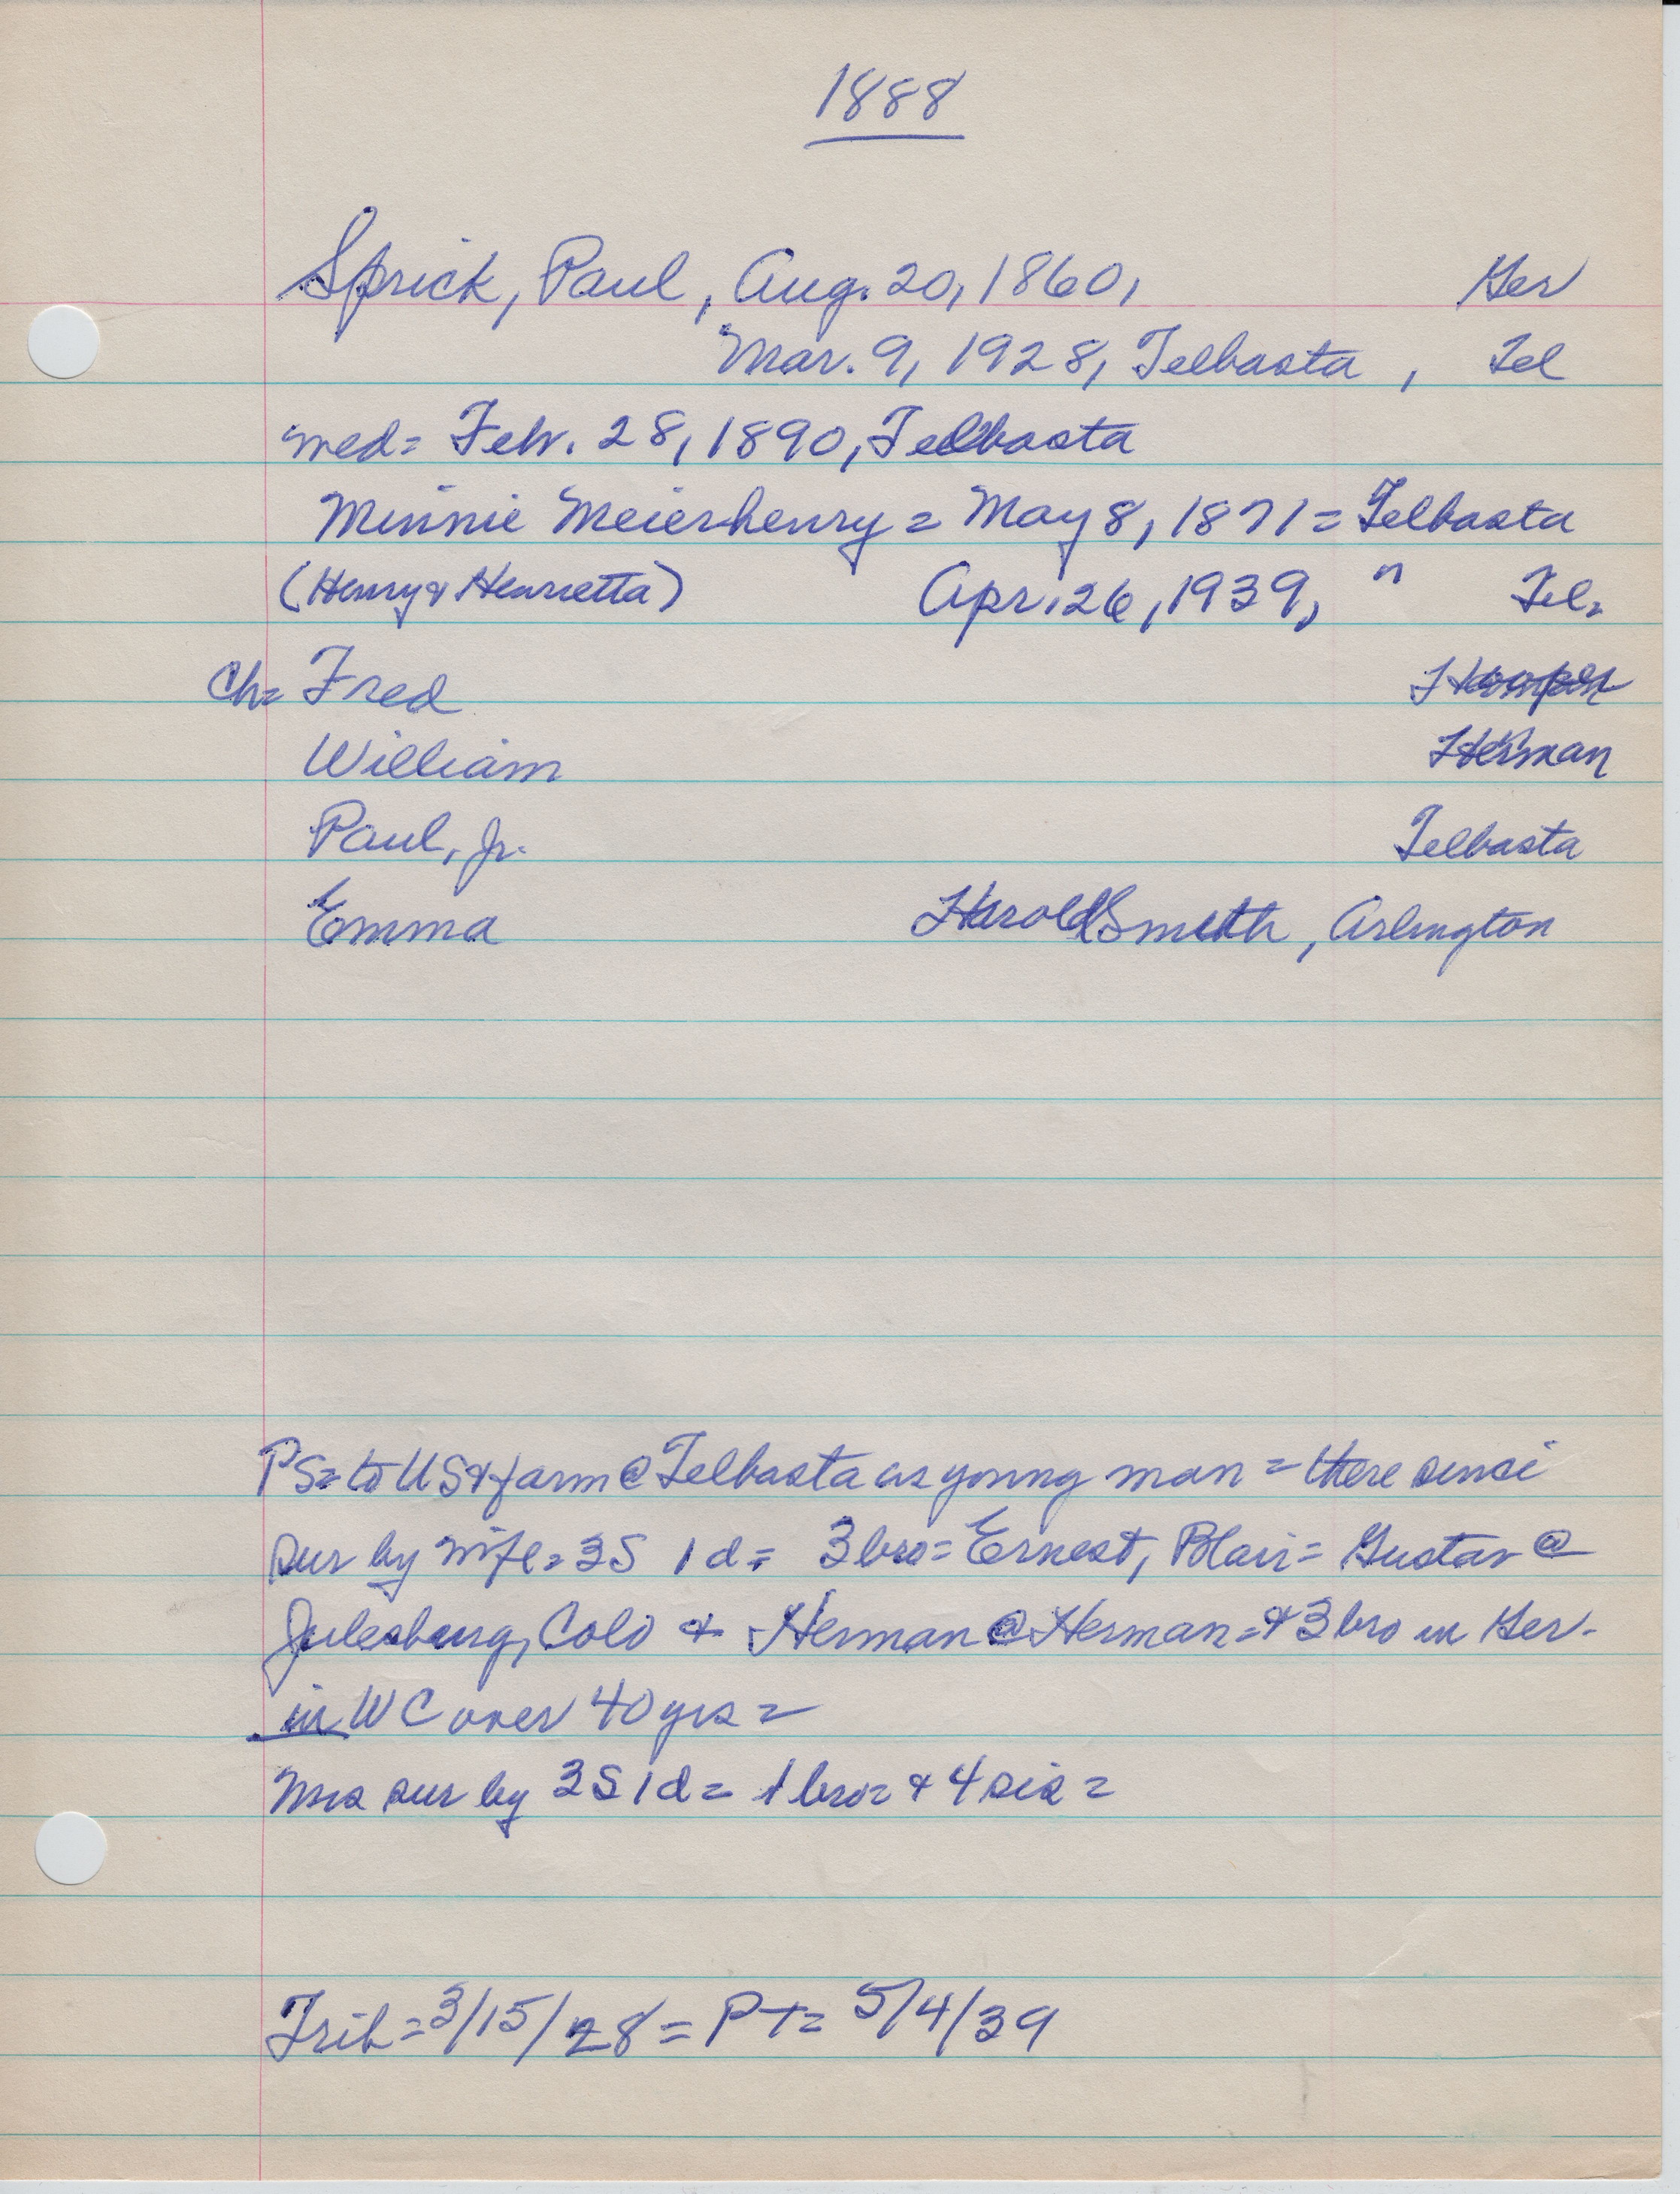 1888
Sprick, Paul, Aug. 20, 1860, Ger
Mar. 9, 1928, Telbasta, Tel
med= Feb. 28, 1890, Telbasta
Minnie Meierhenry = May 8, 1871 = Telbasta
(Henry & Henrietta) Apr. 26, 1939, " Tel.
Ch= Fred Hooper
William Herman
Paul, Jr. Telbasta
Emma Harold Smith, Arlington
PS= to US & farm @ Telbasta as young man = there since
sur by wife = 3S 1d = 3 bro = Ernest, Blair = Gustav @
Julesburg, Colo & Herman @ Herman = & 3 bro in Ger.
in WC over 40 yrs =
Mrs sur by 3S 1d = 1 bro = & 4 sis =
Trib = 3/15/28 = PT = 5/4/39